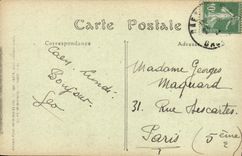 Carte Postale
Correspondance
Adresse
Caen. Lundi.
Bonjour.
Geo
Madame Georges
Maquard
31. Rue Descartes.
Paris (5ème)